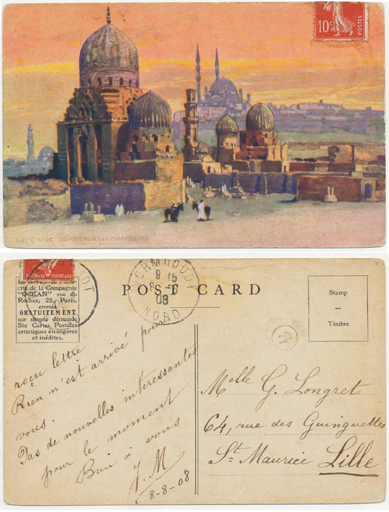 10c
LE CAIRE. TOMBEAUX des MAMELUKS
cité de la Compagnie
"OCEAN" rue du
Rocher, 20, Paris,
envoie
GRATUITEMENT
sur simple demande
Six Cartes Postales
artistiques étrangères
et inédites.
ORMHOUDT
9 15
8 - 8
08
NORD
POST CARD
Stamp
—
Timbre
reçu lettre.
Rien n'est arrivé pour
vous.
Pas de nouvelles intéressantes
pour le moment
Bien à vous
J. M
8-8-08
Melle G. Longret
64, rue des Guinguettes
St Maurice Lille